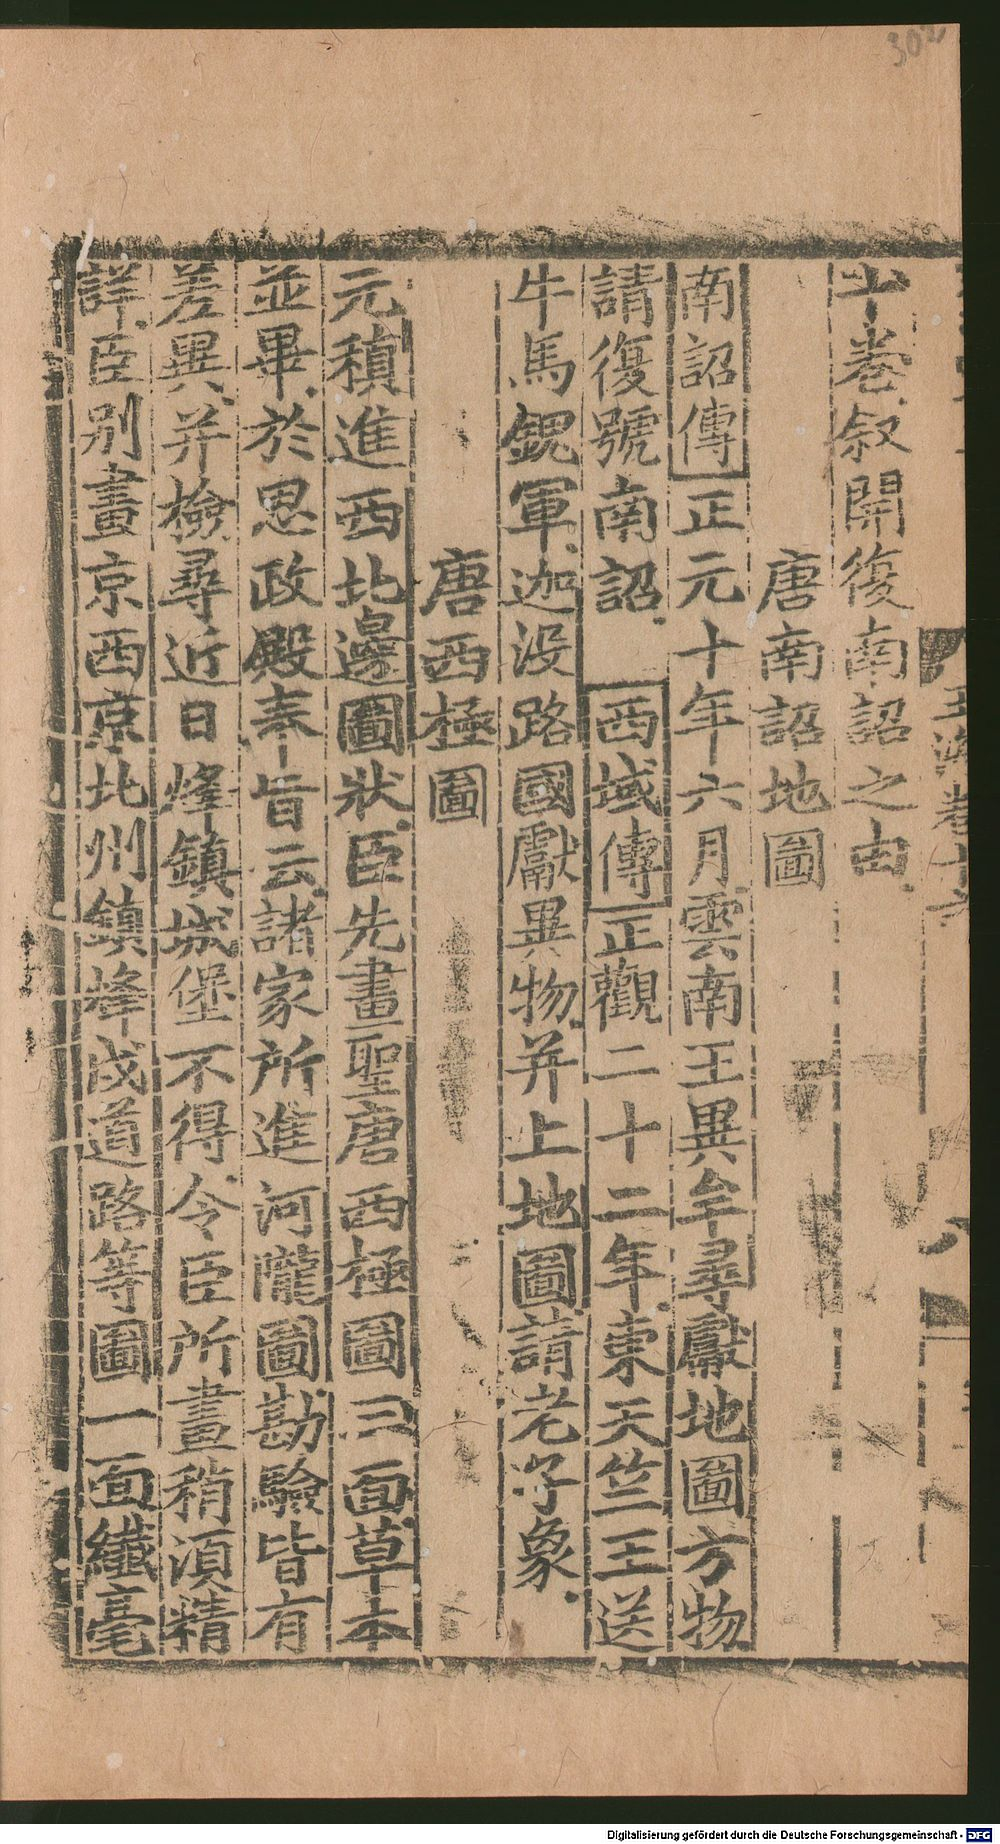 302
十卷叙開復南詔之由
唐南詔地圖
南詔傳正元十年六月雲南王異牟尋獻地圖方物
請復號南詔 西域傳正觀二十二年東天竺王送
牛馬鋧軍迦没路國獻異物并上地圖請老子象
唐西極圖
元稹進西北邊圖狀臣先畫聖唐西極圖三面草本
並畢於思政殿奉旨云諸家所進河隴圖勘驗皆有
差異并檢尋近日烽鎮城堡不得令臣所畫稍湏精
詳臣别畫京西京北州鎮烽戍道路等圖一面纎毫
Digitalisierung gefördert durch die Deutsche Forschungsgemeinschaft - DFG